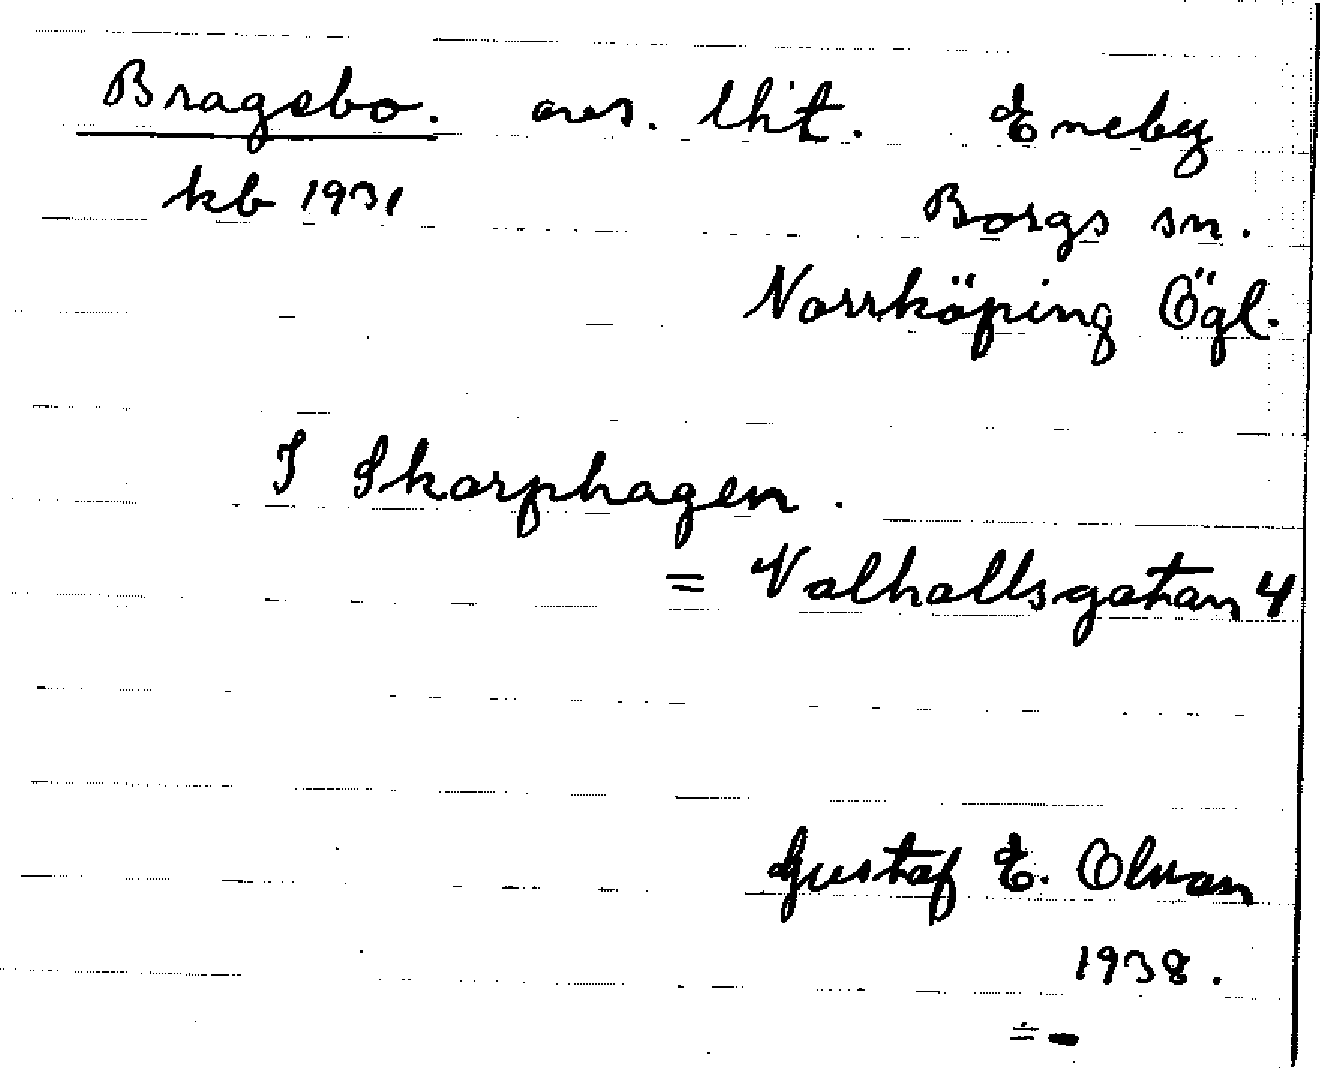 Bragebo. avs. lht. Eneby
kb 1931 Borgs sn.
Norrköping Ögl.
I Skarphagen.
= Valhallsgatan 4
Gustaf E. Olvan
1938.